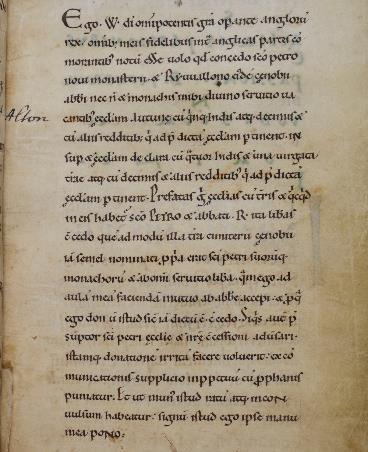 Ego. W. dī omīpotentis grā opante anglorū
rex. omnib; meis fidelibus int anglicas partes cō
morantib; notū esse uolo qd concedo scō petro
noui monasterii. & Ryuuallono eiđe cenobii
abbi nec n̄ & monachis inibi diuino seruitio ua
cantib; ęcclam Aultune cū qinq; hidis atq; decimis &
Alton
cū aliis redditib; q̄ ad p̄dictā ęcclam ptinent. in
sup & ęcclam de clara cū q̄tuor hidis & una uirgata
trae atq; cū decimis & aliis redditib; q̄ ad p̄dictā
ęcclam ptinent. Prefatas g̊ ęcclias cū tris & qcqd
in eis habet scō Petro & abbati. R. ita libas
c̄cedo que ad modū illa tra cimiterii cenobii
iā semel nominati. ppa erat sci petri suorūq;
monachorū & ab omi seruitio liba. q̄m ego ad
aulā meā faciendā mutuo ab abbe accepi. & pq
ego don ū istud sic iā dictū ē c̄cedo. Siqs aut p
suptor sci petri ecclie & nrę c̄cessioni aduersari.
istamq; donatione irritā facere uoluerit. ex cō
municationis supplicio inppetuū cū pphanis
puniatur. Et ut mun istud ratū atq; incon
uulsum habeatur. signū istud ego ipse manu
mea pono.